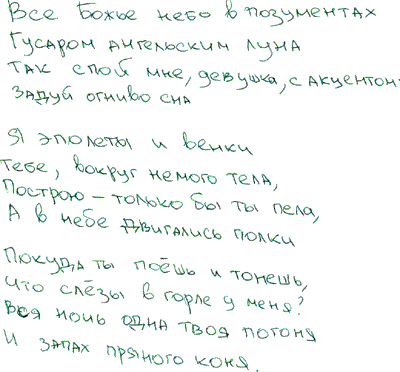 Все Божье небо в позументах
Гусаром ангельским луна
Так спой мне, девушка, с акцентом
Задуй огниво сна
Я эполеты и венки
Тебе, вокруг немого тела,
Построю – только бы ты пела,
А в небе двигались полки
Покуда ты поёшь и тонешь,
Что слёзы в горле у меня?
Вся ночь одна твоя погоня
И запах пряного коня.